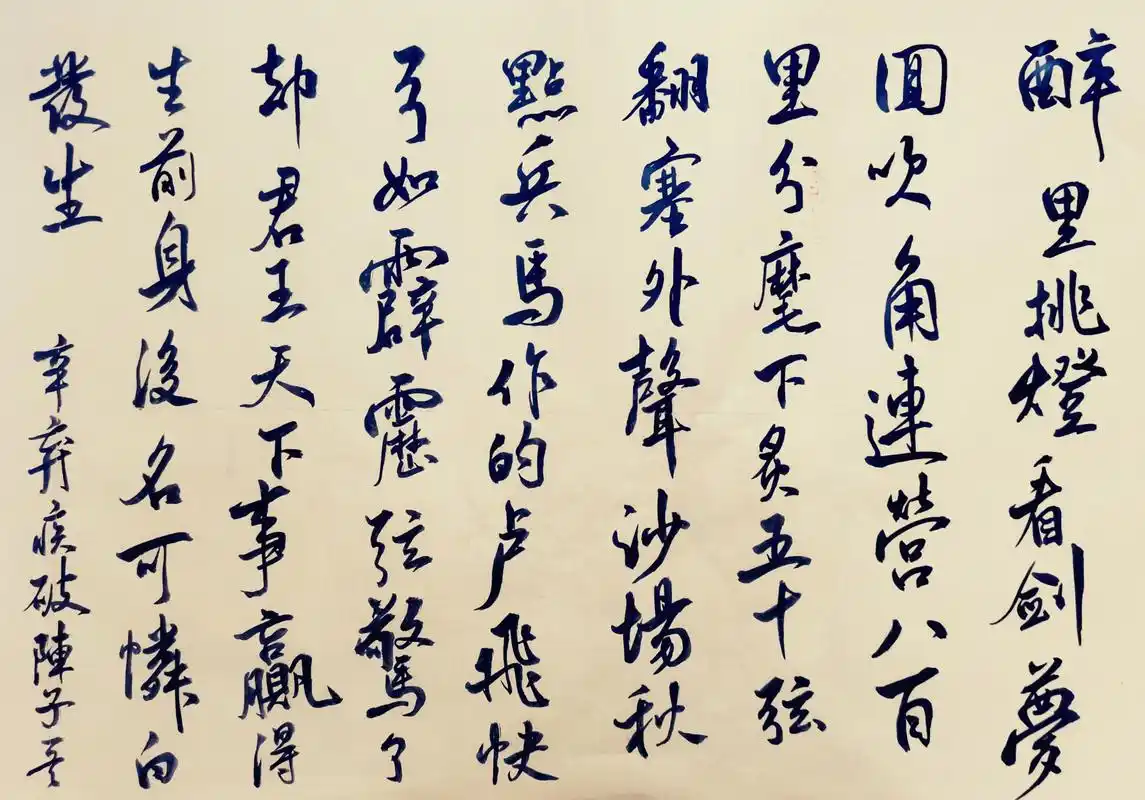 醉里挑燈看劍夢
回吹角連營八百
里分麾下炙五十弦
翻塞外聲沙場秋
點兵馬作的卢飛快
弓如霹靂弦驚了
却君王天下事贏得
生前身後名可憐白
發生
辛弃疾破陣子